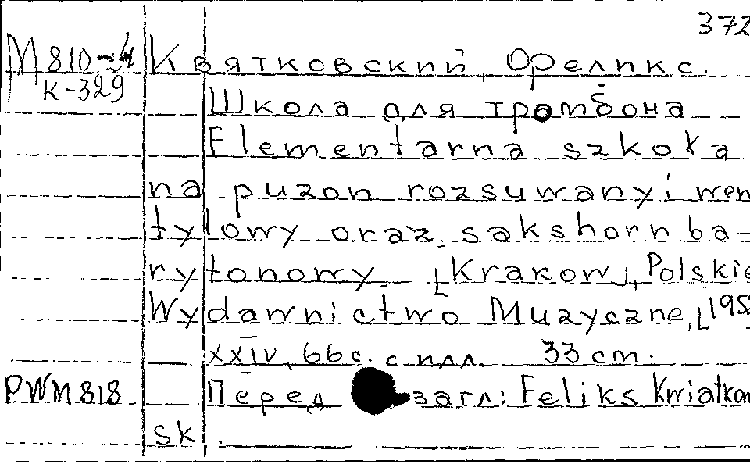 372
М810-4 Квятковский, Фреликс.
К-329 Школа для тромбона
Elementarna szkoła
na puzon rozsuwany i wen
tylowy oraz sakshorn ba-
rytonowy [Krakow], Polskie
Wydawnictwo Muzyczne, [195
XXIV, 66 с. с илл. 33 cm.
PWM 818. Перед загл: Feliks Kwiatkow
sk